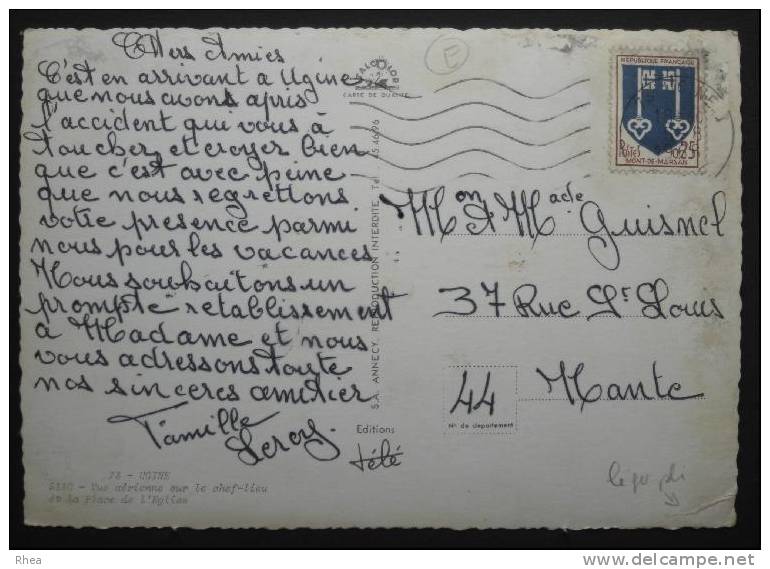 Chers Amies
C'est en arrivant à Ugine
que nous avons apris
l'accident qui vous à
toucher, et croyer bien
que c'est avec peine
que nous regrettons
votre presence parmi
nous pour les vacances
Nous souhaitons un
prompte retablissement
à Madame et nous
vous adressons toute
nos sinceres amitier
Famille
Leroy
73 - UGINE
Vue aérienne sur le chef-lieu
et la Place de l'Eglise
CARTE DE QUALITE
S.A. ANNECY. REPRODUCTION INTERDITE. Tél. 45.46.96
Editions
télé
E
REPUBLIQUE FRANÇAISE
POSTES 0.25
MONT-DE-MARSAN
Mon et Made Guisnel
37 Rue St Louis
44 Nante
N° de département
le po pli
Rhea
http://www.delcampe.net